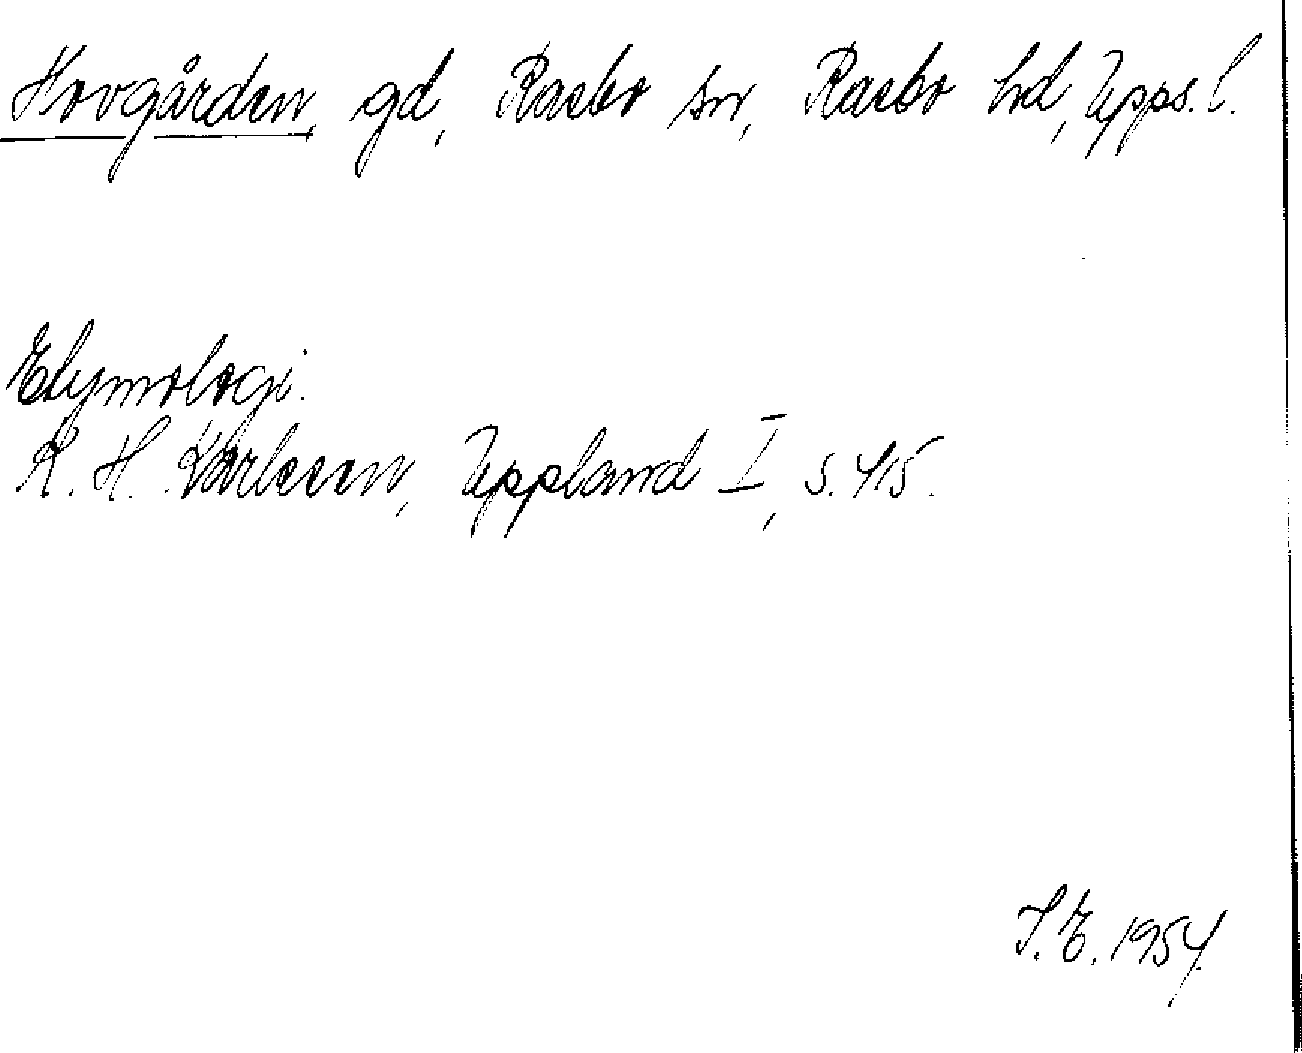 Hovgården, gd, Rasbo sn, Rasbo hd, Upps. l.
Etymologi.
K. H. Karlsson, Uppland I, s. 415.
I. E. 1954.